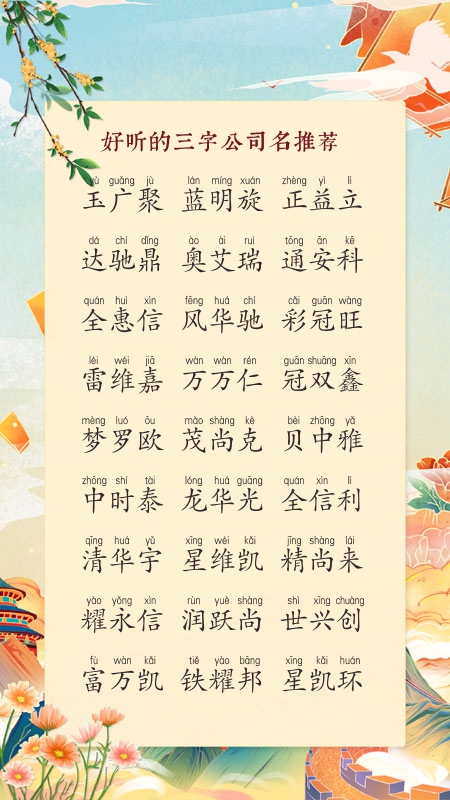 好听的三字公司名推荐
yù guǎng jù lán míng xuán zhèng yì lì
玉广聚 蓝明旋 正益立
dá chí dǐng ào ài ruì tōng ān kē
达驰鼎 奥艾瑞 通安科
quán huì xìn fēng huá chí cǎi guān wàng
全惠信 风华驰 彩冠旺
léi wéi jiā wàn wàn rén guān shuāng xīn
雷维嘉 万万仁 冠双鑫
mèng luó ōu mào shàng kè bèi zhōng yǎ
梦罗欧 茂尚克 贝中雅
zhōng shí tài lóng huá guāng quán xìn lì
中时泰 龙华光 全信利
qīng huá yǔ xīng wéi kǎi jīng shàng lái
清华宇 星维凯 精尚来
yào yǒng xìn rùn yuè shàng shì xīng chuàng
耀永信 润跃尚 世兴创
fù wàn kǎi tiě yào bāng xīng kǎi huán
富万凯 铁耀邦 星凯环